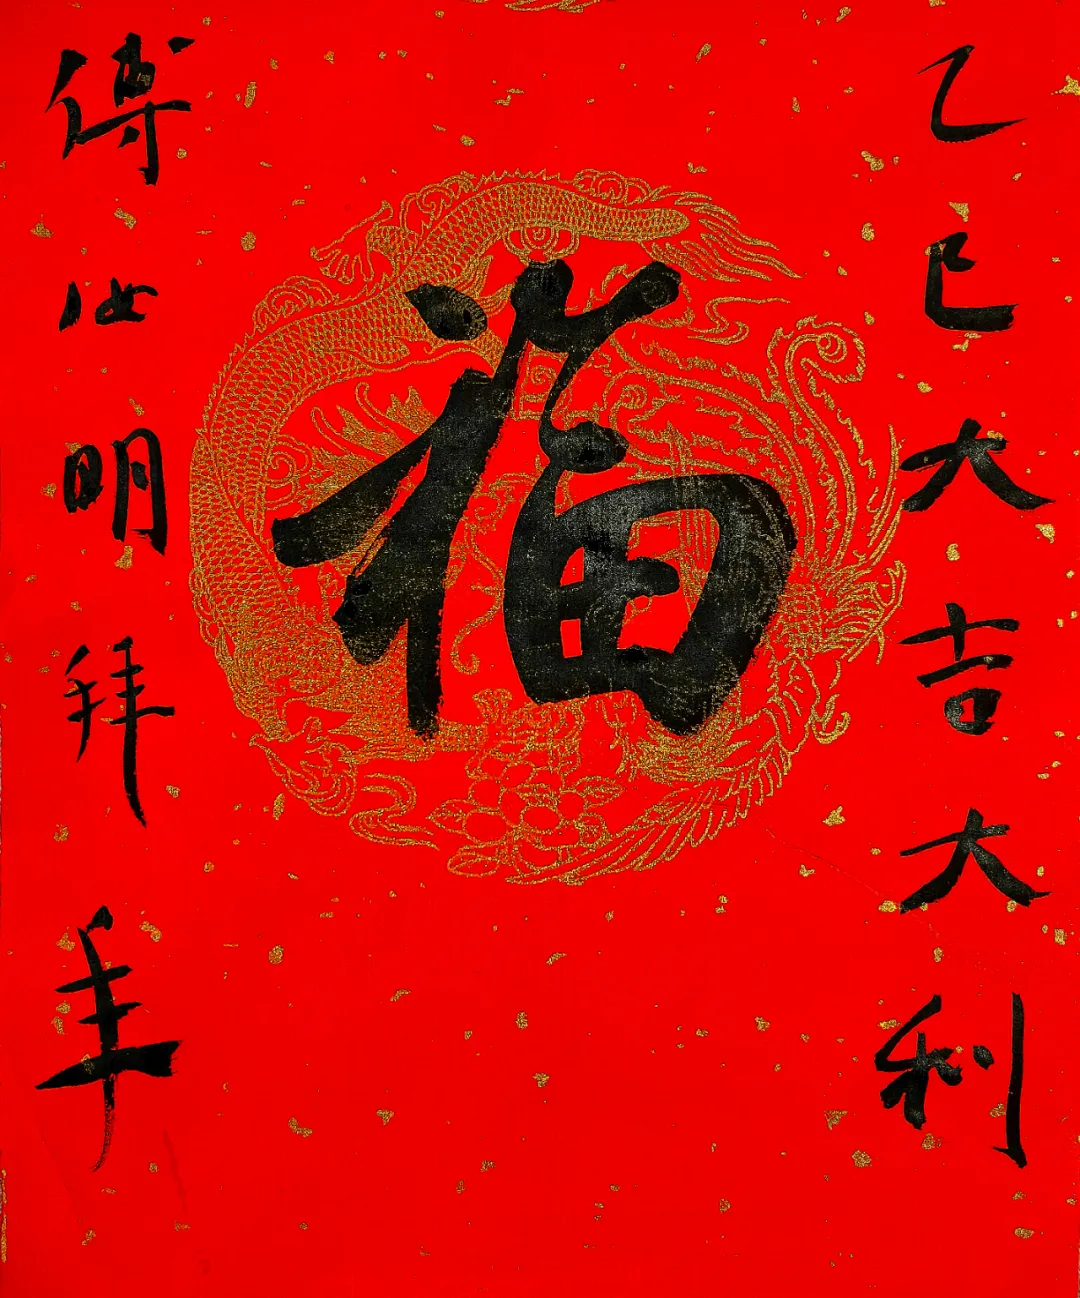 乙巳大吉大利
福
傅汝明拜年